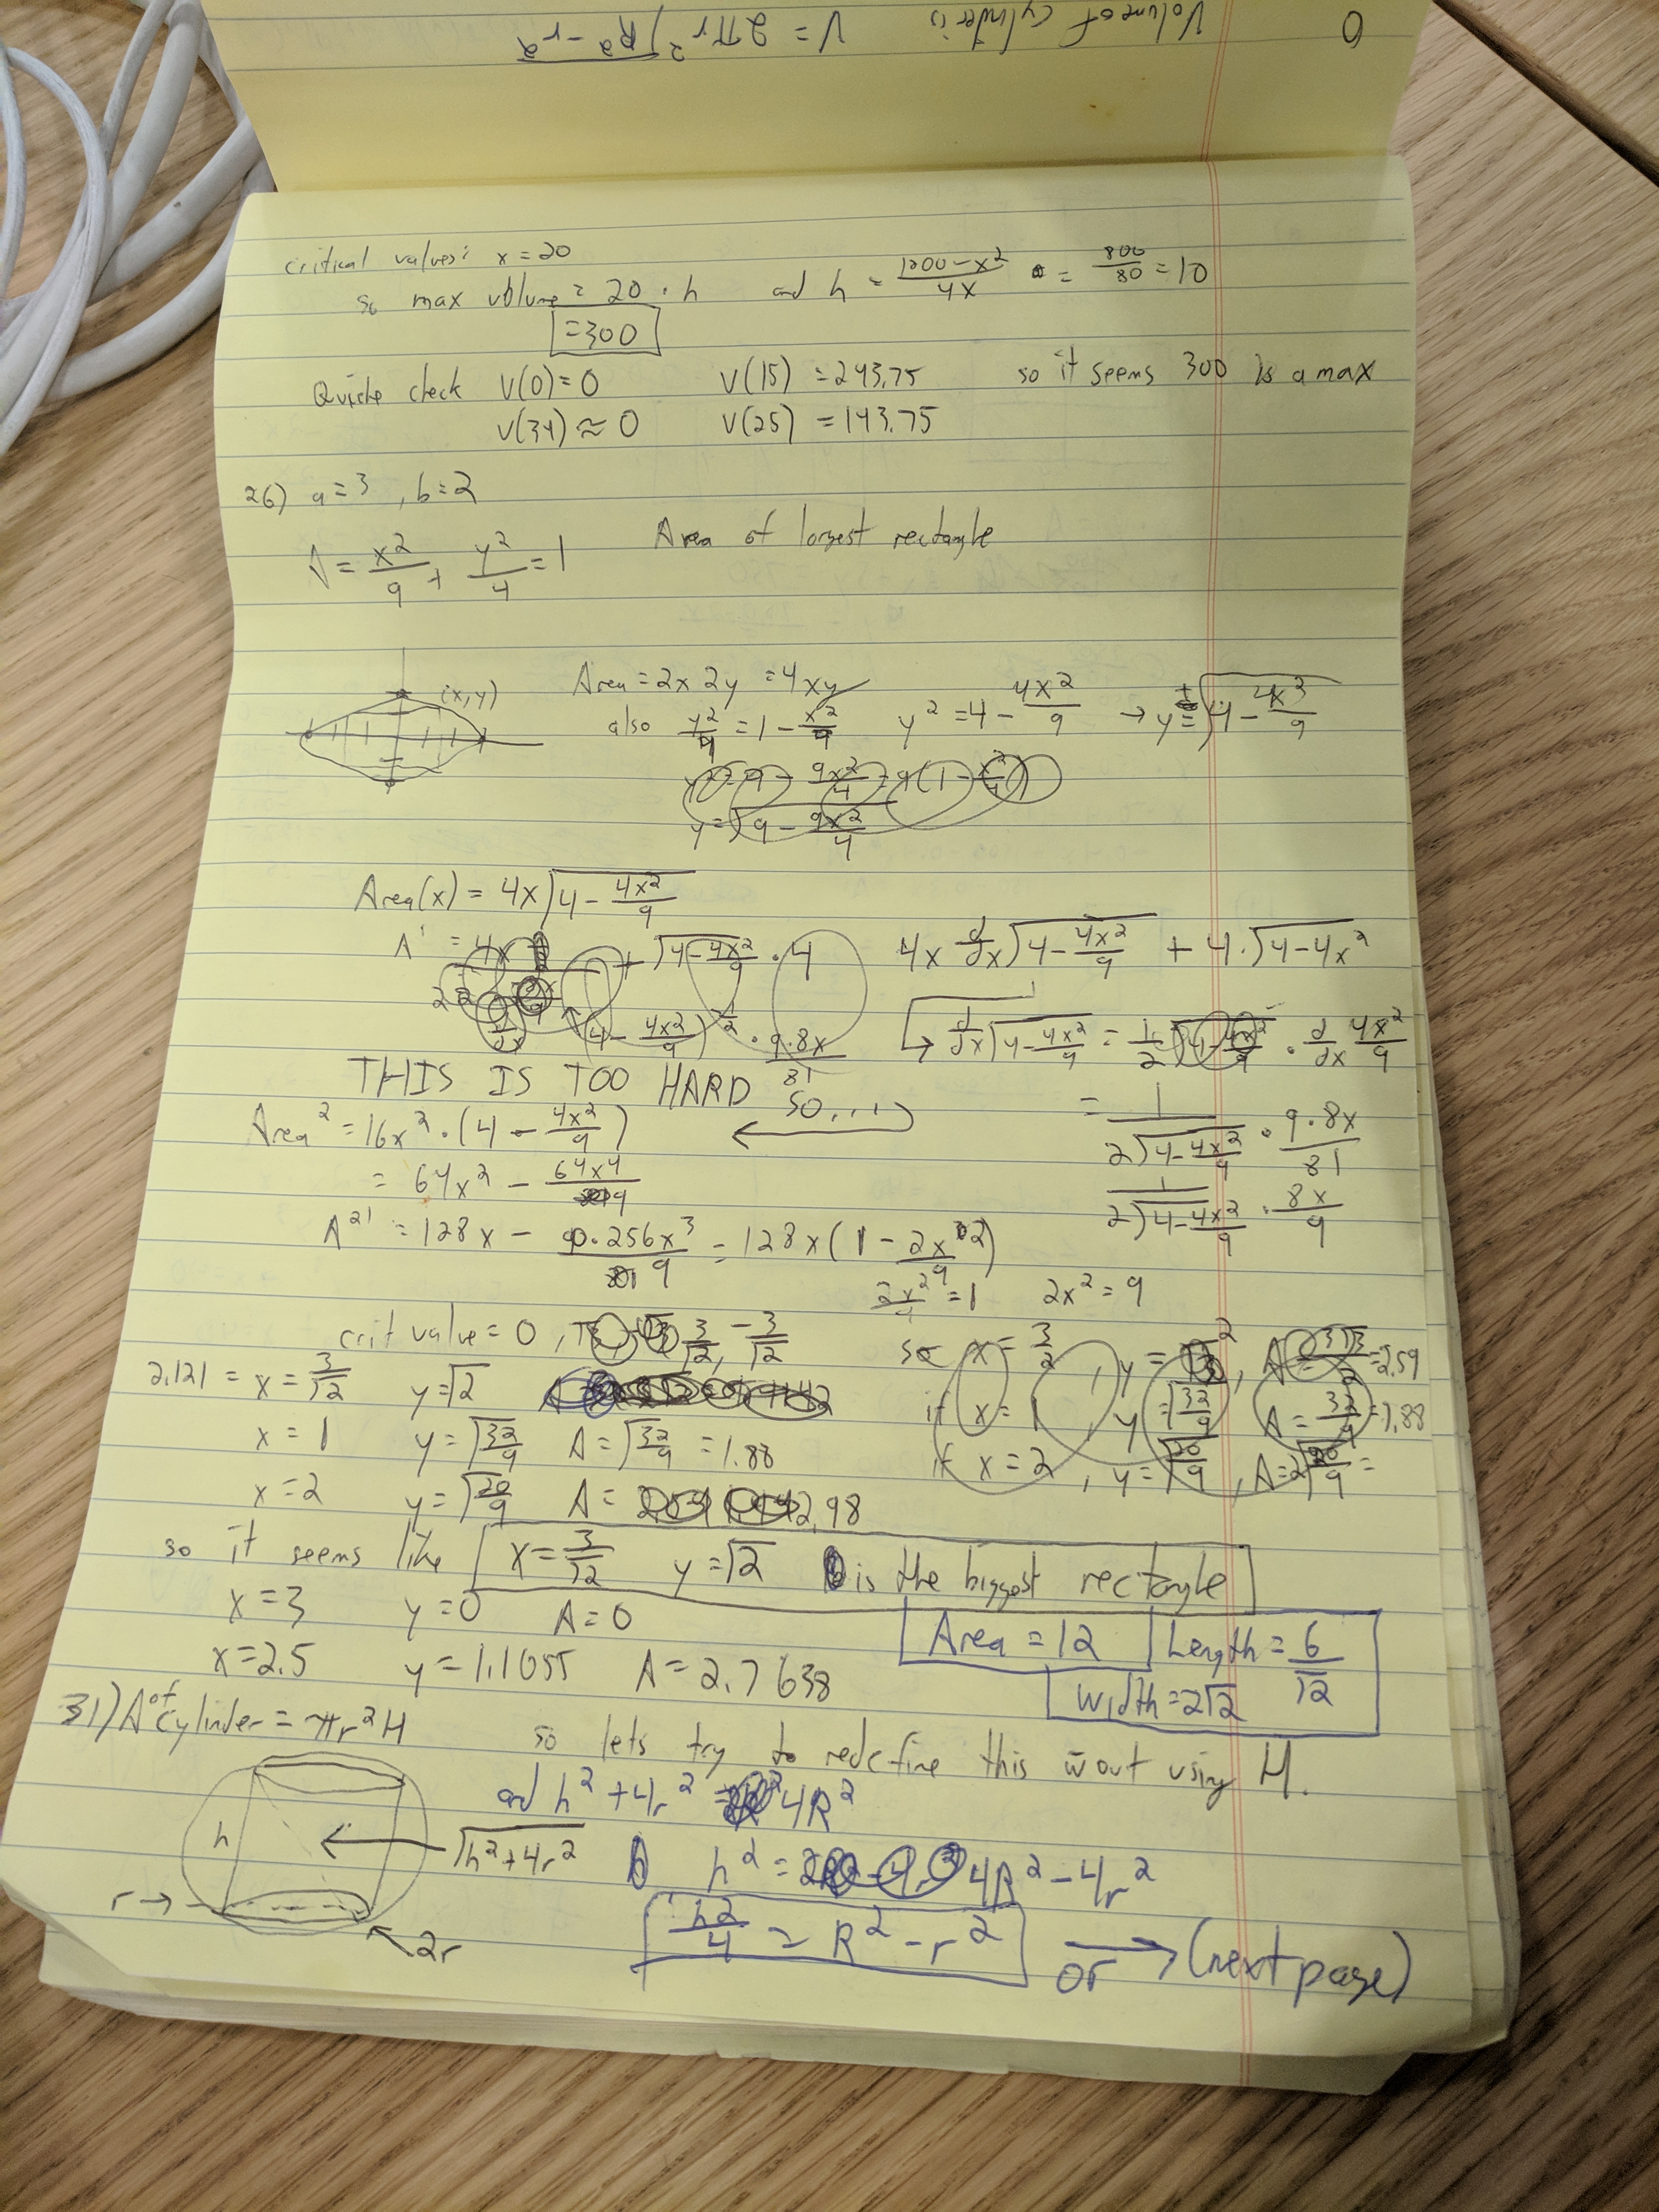 Volume of cylinder is V = 2πr²√(R²-r²)
critical values: x = 20
so max volume = 20 · h and h = (1200-x²)/4x = 800/80 = 10
= 300
Quicke check V(0) = 0 V(15) = 243.75 so it seems 300 is a max
V(34) ≈ 0 V(25) = 143.75
26) a=3, b=2
A = x²/9 + y²/4 = 1 Area of largest rectangle
Area = 2x 2y = 4xy
(x,y) also y²/4 = 1 - x²/9 y² = 4 - 4x²/9 → y = ±√(4 - 4x²/9)
y² = 9 - 9x²/4 = 9(1 - x²/4)
y = √(9 - 9x²/4)
Area(x) = 4x√(4 - 4x²/9)
A' = 4x + √(4 - 4x²/9) · 4 4x d/dx √(4 - 4x²/9) + 4·√(4-4x²
(4 - 4x²/9)^½ · 9·8x/81 ↳ d/dx √(4 - 4x²/9) = ½√(4 - 4x²/9) · d/dx 4x²/9
THIS IS TOO HARD so... ←
= 1/(2√(4 - 4x²/9)) · 9·8x/81
Area² = 16x² · (4 - 4x²/9)
= 64x² - 64x⁴/9
1/(2√(4 - 4x²/9)) · 8x/9
A²' = 128x - 256x³/9 = 128x(1 - 2x²/9)
2x²/9 = 1 2x² = 9
crit value = 0, 3/√2, -3/√2
so x = 3/2, y = , A = 3√3/2 = 2.59
2.121 = x = 3/√2 y = √2
if x = 1, y = √(32/9) A = 32/9 = 1.88
x = 1 y = √(32/9) A = √(32/9) = 1.88
if x = 2, y = √(20/9), A = 2√(20/9) =
x = 2 y = √(20/9) A = 2.98
so it seems like x = 3/√2 y = √2 is the biggest rectangle
x = 3 y = 0 A = 0
Area = 12 Length = 6/√2
x = 2.5 y = 1.1055 A = 2.7638
width = 2√2
31) A of cylinder = πr²H so lets try to redefine this w out using H.
and h² + 4r² = 4R²
h ← √(h²+4r²) h² = 4R² - 4r²
r → h²/4 = R² - r² or → (next page)
2r